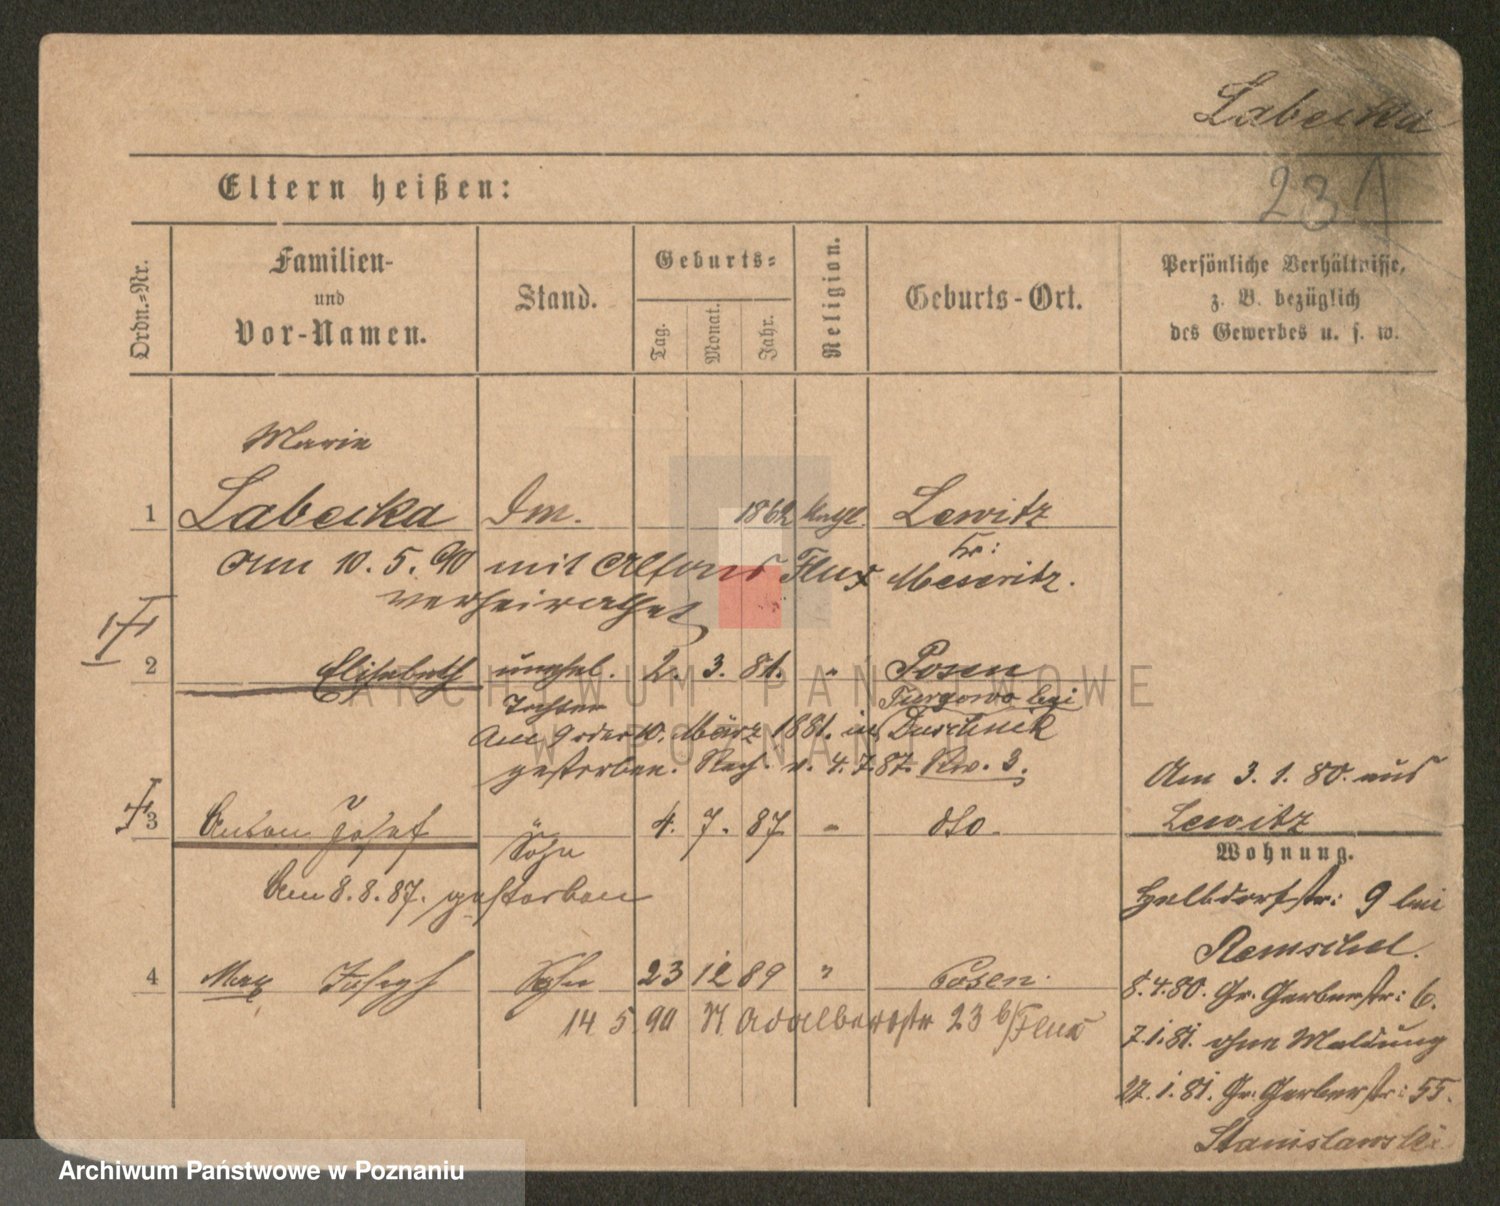 Labecka
23
Eltern heißen:
Ordn.=Nr.
Familien-
und
Vor-Namen.
Stand.
Geburts=
Tag.
Monat.
Jahr.
Religion.
Geburts-Ort.
Persönliche Verhältnisse,
z. B. bezüglich
des Gewerbes u. s. w.
Marie
1 Labecka Dm. 1862 kath. Lewitz
Kr:
Am 10. 5. 90 mit Alfons Flux Meseritz.
verheirathet
2 Elisabeth unehel. 2. 3. 81. " Posen
Tochter Turgowo bei
Am 9 oder 10. März 1881. in Duschnik
gestorben. v. 4. 7. 87. Rev. 3.
Am 3. 1. 80. aus
Lewitz
3 Anton Josef " 4. 7. 87 " dto.
Sohn
Wohnung.
Am 8. 8. 87. gestorben
Halbdorfstr: 9 bei
4 Max Joseph Sohn 23 12 89 " Posen.
8. 4. 80. Gr. Gerberstr: 6.
14 5. 90 N Adalbertstr 23 b/Flux
7. 1. 81. ohne Meldung
27. 1. 81. Gr. Gerberstr: 55.
Stanislawski
ARCHIWUM PAŃSTWOWE
W POZNANIU
Archiwum Państwowe w Poznaniu